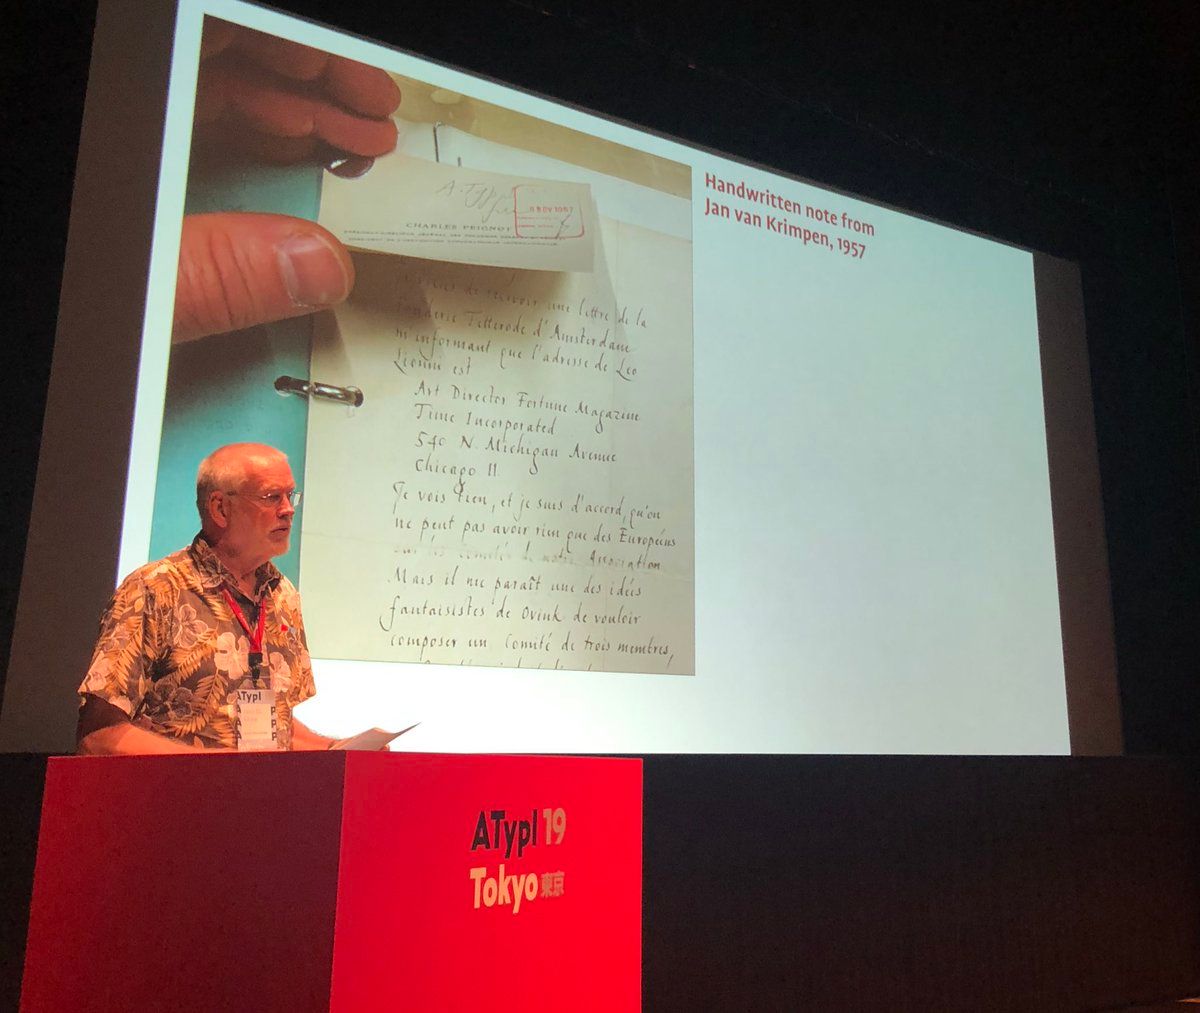 Handwritten note from
Jan van Krimpen, 1957
A.Typ
8 NOV 1957
CHARLES PEIGNOT
de recevoir une lettre de la
fonderie Tetterode d'Amsterdam
m'informant que l'adresse de Leo
Lionni est
Art Director Fortune Magazine
Time Incorporated
540 N. Michigan Avenue
Chicago 11.
Je vois bien, et je suis d'accord, qu'on
ne peut pas avoir rien que des Européens
sur les Comités de notre Association
Mais il me paraît une des idées
fantaisistes de Ovink de vouloir
composer un Comité de trois membres,
ATypI
ATypI 19
Tokyo 東京